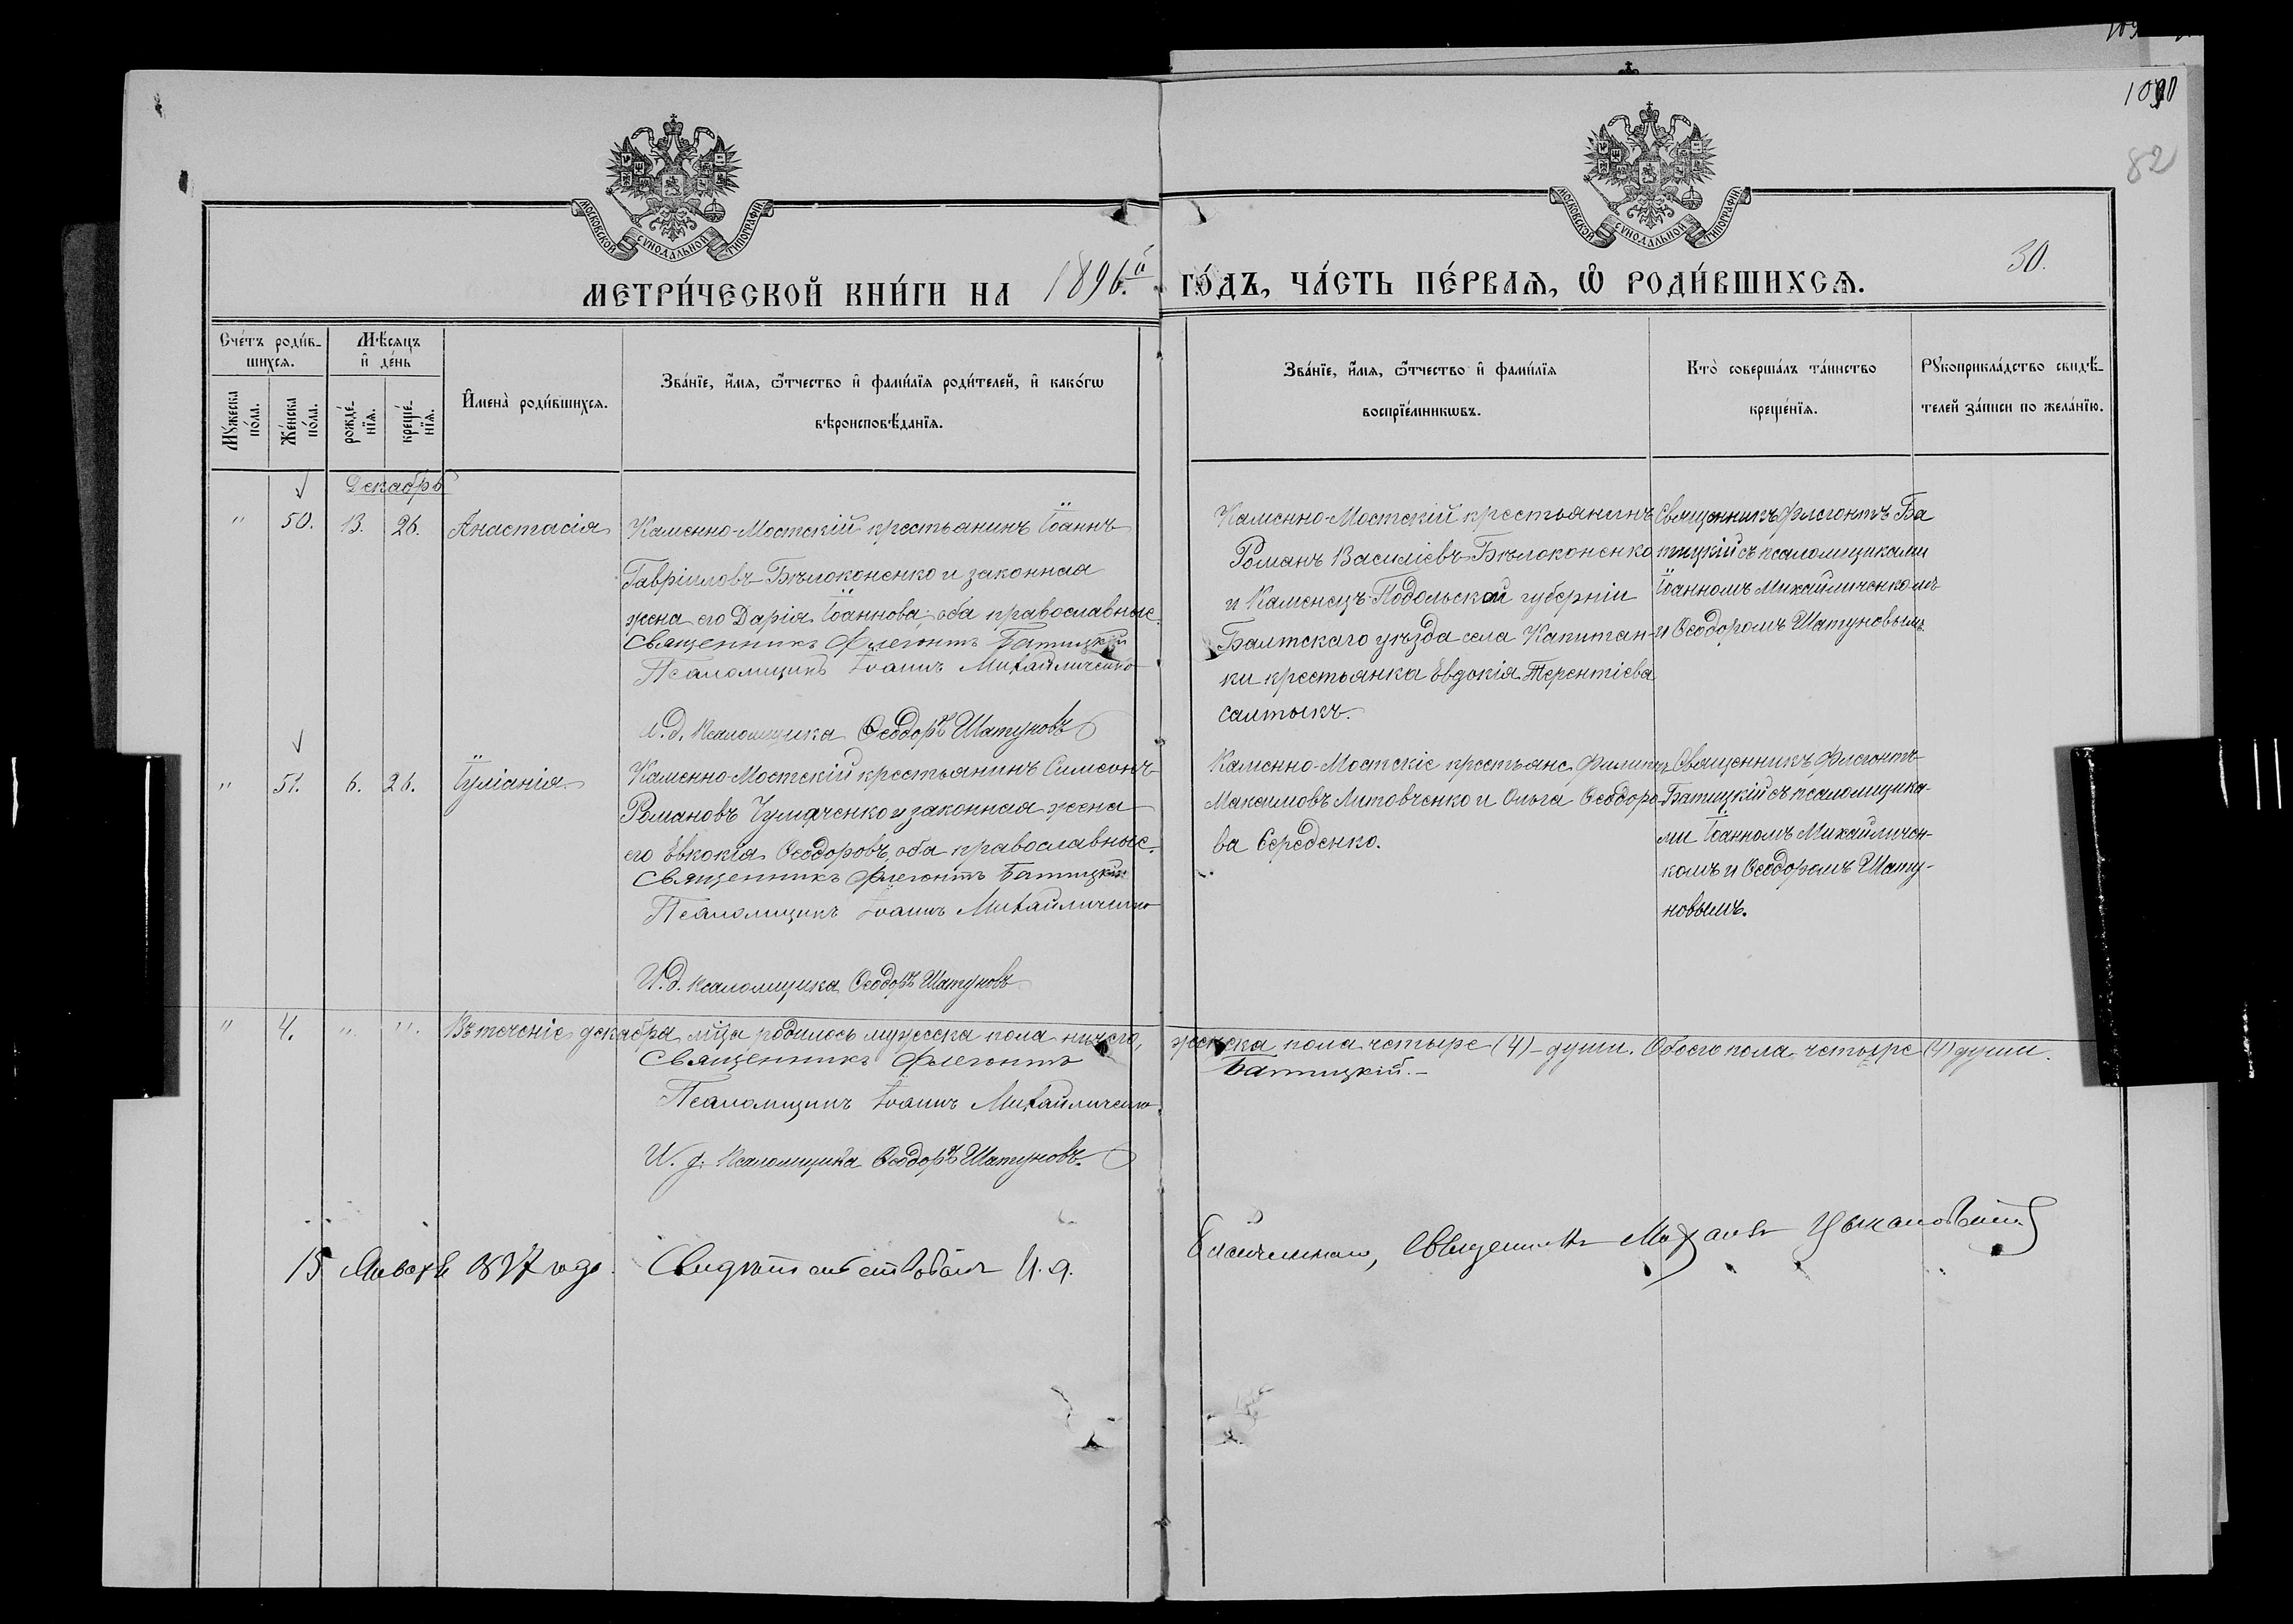 1090
82
МОСКОВСКОЙ СѴНОДАЛЬНОЙ ТИПОГРАФІИ
МОСКОВСКОЙ СѴНОДАЛЬНОЙ ТИПОГРАФІИ
30.
МЕТРИ́ЧЕСКОЙ КНИ́ГИ НА 1896.й ГО́ДЪ, ЧА́СТЬ ПЕ́РВАѦ, Ѽ РОДИ́ВШИХСѦ.
Сче́тъ роди́в-
шихсѧ.
Мꙋ́жеска по́ла.
Же́нска по́ла.
Мѣ́сѧцъ и҆ де́нь
рожде́-нїѧ.
креще́-нїѧ.
И҆мена̀ роди́вшихсѧ.
Зва́нїе, и҆́мѧ, ѻ҆́тчество и҆ фами́лїѧ роди́телей, и҆ како́гѡ
вѣроисповѣ́данїѧ.
Зва́нїе, и҆́мѧ, ѻ҆́тчество и҆ фами́лїѧ
воспрїе́мникѡвъ.
Кто̀ соверша́лъ та́инство
креще́нїѧ.
Рꙋкоприкла́дство свидѣ́-
телей за́писи по жела́нїю.
Декабрь
" 50. 13. 26. Анастасія
Каменно-Мостскій крестьянинъ Іоаннъ
Гавріиловъ Бѣлоконенко и законная
жена его Дарія Іоаннова, оба православные.
Священникъ Флегонтъ Батицкій
Псаломщикъ Іоаннъ Михайличенко
И.д. псаломщика Ѳеодоръ Шатуновъ
Каменно-Мостскій крестьянинъ
Романъ Василіевъ Бѣлоконенко
и Каменецъ-Подольской губерніи
Балтскаго уѣзда села Капитан-
ки крестьянка Евдокія Терентіева
Салтыкъ.
Священникъ Флегонтъ Ба
тицкій съ псаломщиками
Іоанномъ Михайличенкомъ
и Ѳеодоромъ Шатуновымъ.
" 51. 6. 26. Іуліанія
Каменно-Мостскій крестьянинъ Симеонъ
Романовъ Чумаченко и законная жена
его Евкокія Ѳеодоровъ, оба православные.
Священникъ Флегонтъ Батицкій
Псаломщикъ Іоаннъ Михайличенко
И.д. псаломщика Ѳеодоръ Шатуновъ
Каменно-Мостскіе крестьяне Филиппъ
Максимовъ Литовченко и Ольга Ѳеодоро-
ва Середенко.
Священникъ Флегонтъ
Батицкій съ псаломщика-
ми Іоанномъ Михайличен-
комъ и Ѳеодоромъ Шату-
новымъ.
" 4. " " Въ теченіе декабря мѣца родилось мужеска пола ничего, женска пола четыре (4) души. Обоего пола четыре (4) души.
Священникъ Флегонтъ Батицкій.
Псаломщикъ Іоаннъ Михайличенко
И. д. псаломщика Ѳеодоръ Шатуновъ.
15 Января 1897 года. Свидѣтельствовалъ И. д. Благочиннаго, Священникъ